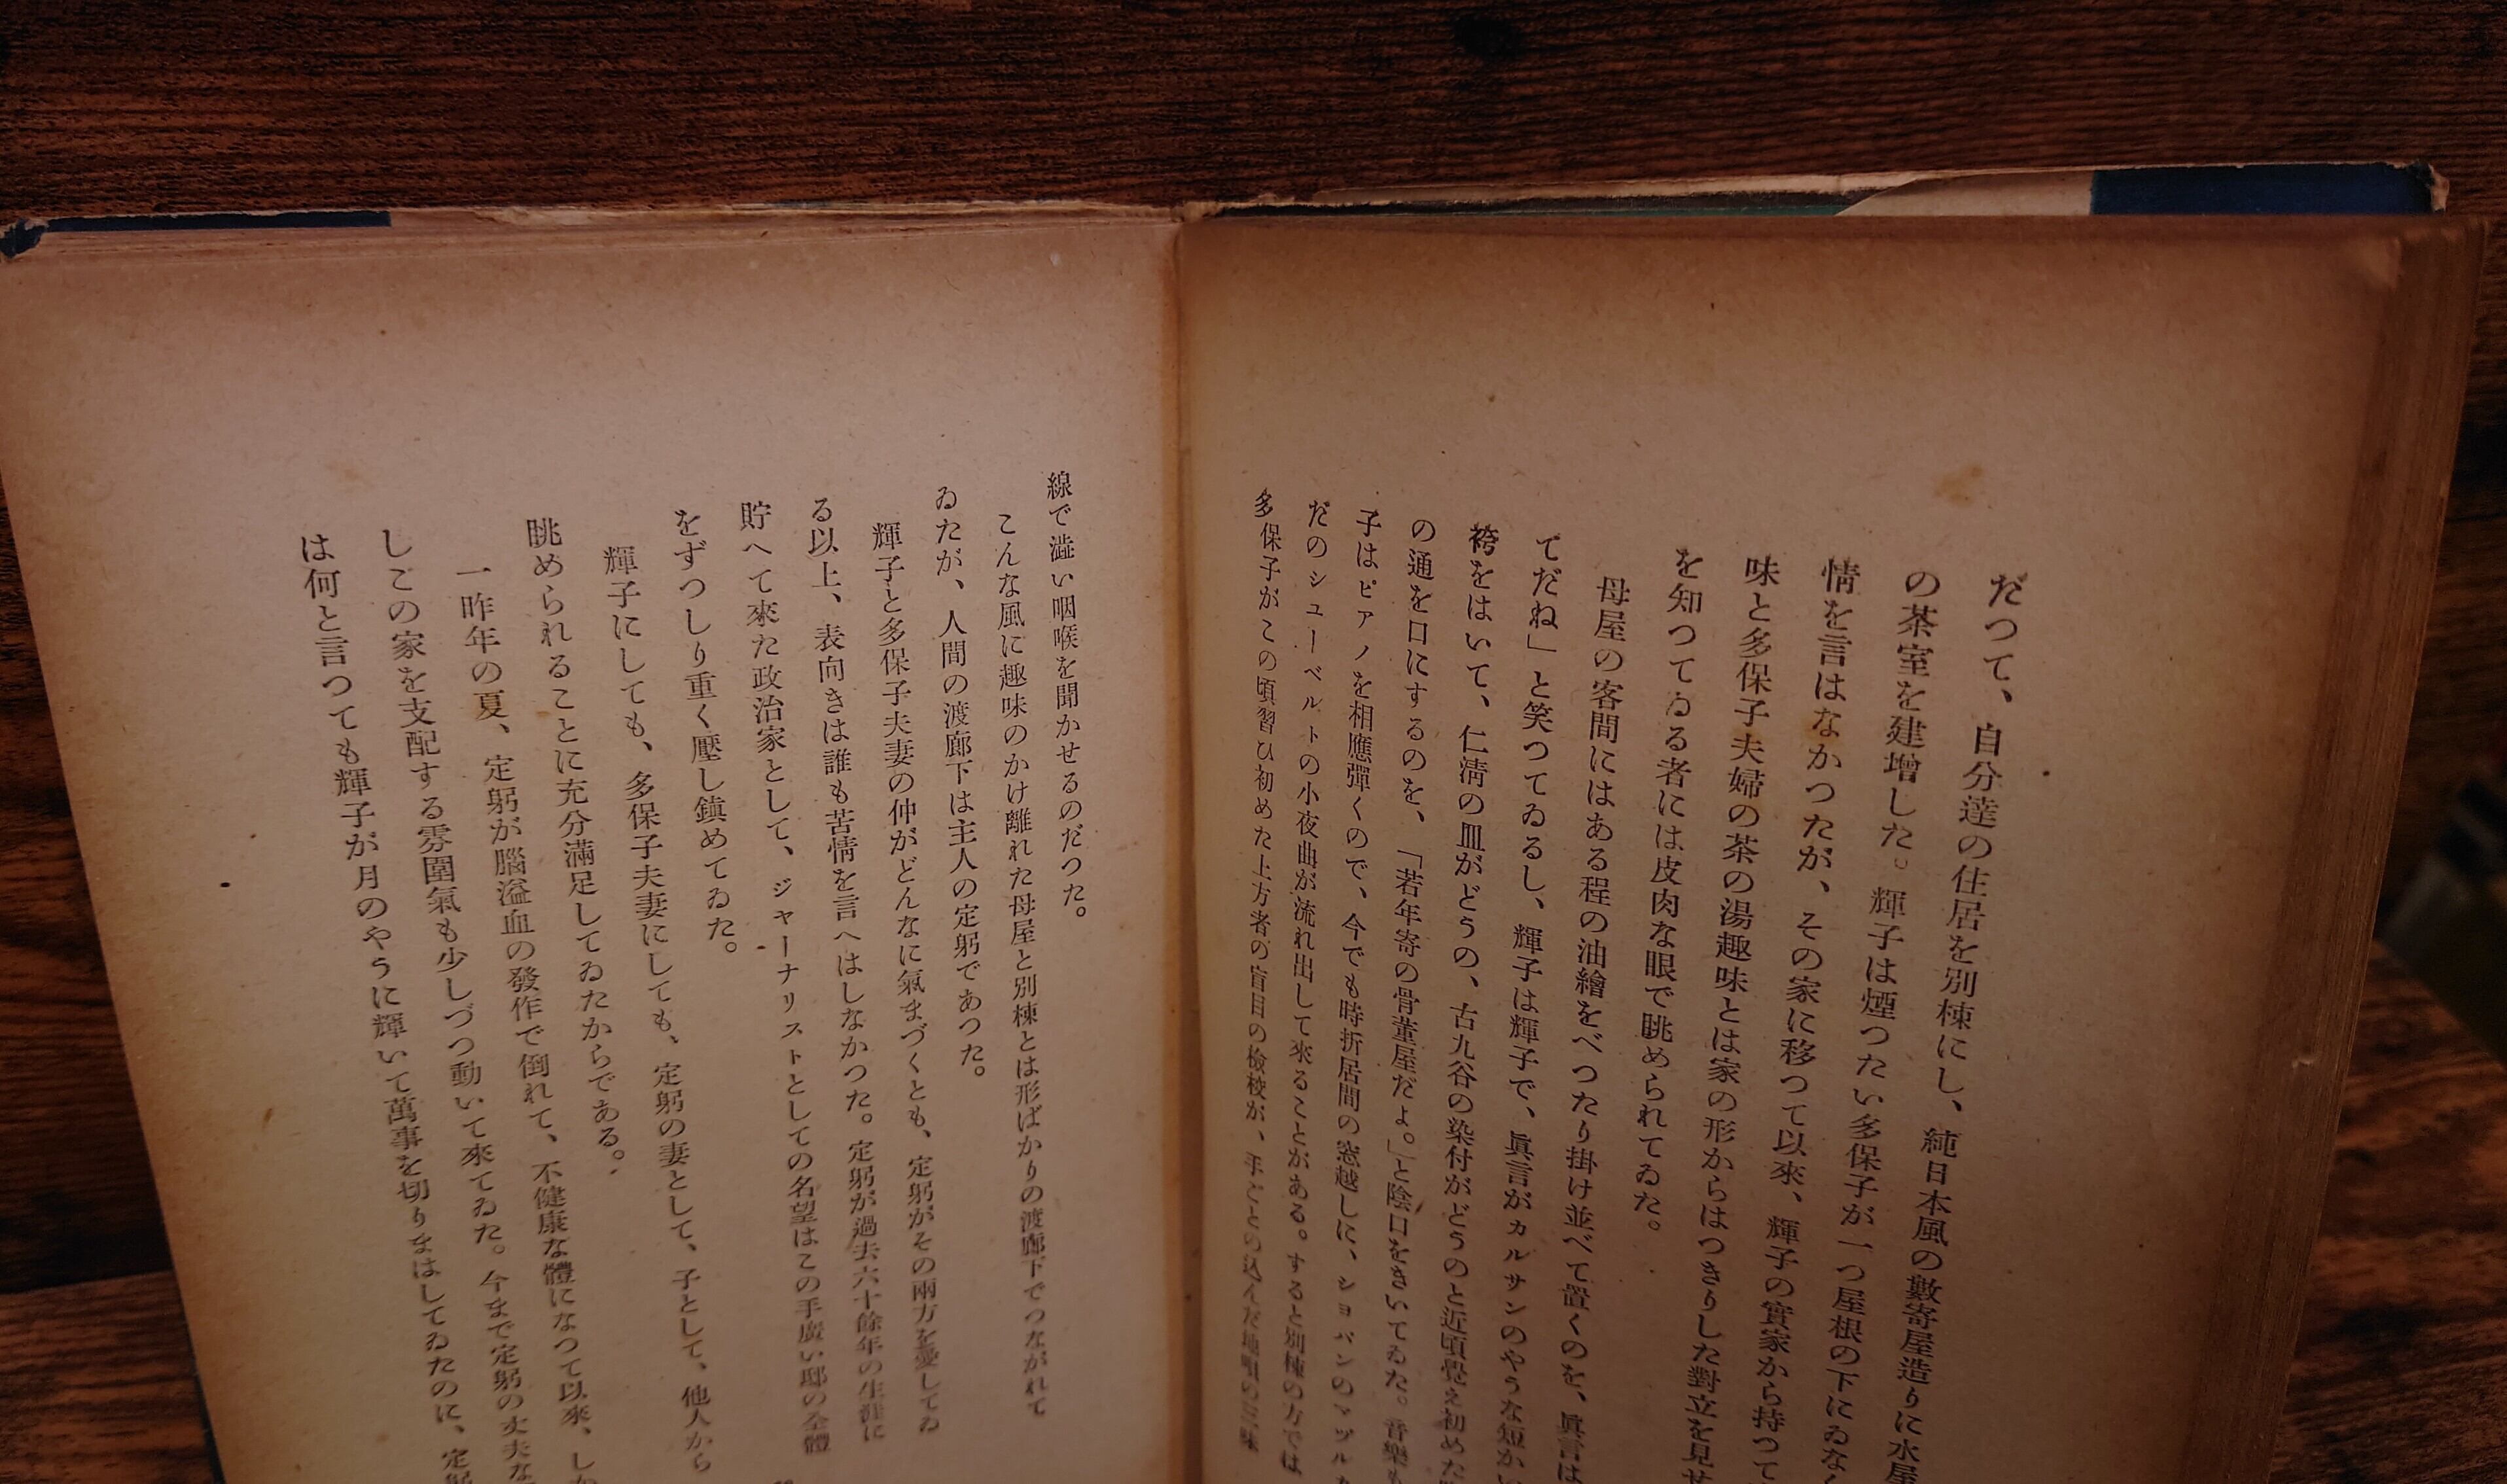 だつて、自分達の住居を別棟にし、純日本風の數寄屋造りに水屋
の茶室を建増した。輝子は煙つたい多保子が一つ屋根の下にゐなく
情を言はなかつたが、その家に移つて以來、輝子の實家から持つて
味と多保子夫婦の茶の湯趣味とは家の形からはつきりした對立を見せ
を知つてゐる者には皮肉な眼で眺められてゐた。
母屋の客間にはある程の油繪をべつたり掛け並べて置くのを、眞言は
てだね」と笑つてゐるし、輝子は輝子で、眞言がカルサンのやうな短かい
袴をはいて、仁淸の皿がどうの、古九谷の染付がどうのと近頃覺え初めた
の通を口にするのを、「若年寄の骨董屋だよ。」と陰口をきいてゐた。音樂も
子はピアノを相應彈くので、今でも時折居間の窓越しに、ショパンのマヅルカ
だのシューベルトの小夜曲が流れ出して來ることがある。すると別棟の方では
多保子がこの頃習ひ初めた上方者の盲目の檢校が、手ごとの込んだ地唄の三味
線で澁い咽喉を聞かせるのだつた。
こんな風に趣味のかけ離れた母屋と別棟とは形ばかりの渡廊下でつながれて
ゐたが、人間の渡廊下は主人の定躬であつた。
輝子と多保子夫妻の仲がどんなに氣まづくとも、定躬がその兩方を愛してゐ
る以上、表向きは誰も苦情を言へはしなかつた。定躬が過去六十餘年の生涯に
貯へて來た政治家として、ジャーナリストとしての名望はこの手廣い邸の全體
をずつしり重く壓し鎭めてゐた。
輝子にしても、多保子夫妻にしても、定躬の妻として、子として、他人から
眺められることに充分滿足してゐたからである。
一昨年の夏、定躬が腦溢血の發作で倒れて、不健康な體になつて以來、しか
しこの家を支配する雰圍氣も少しづつ動いて來てゐた。今まで定躬の丈夫な
は何と言つても輝子が月のやうに輝いて萬事を切りまはしてゐたのに、定躬